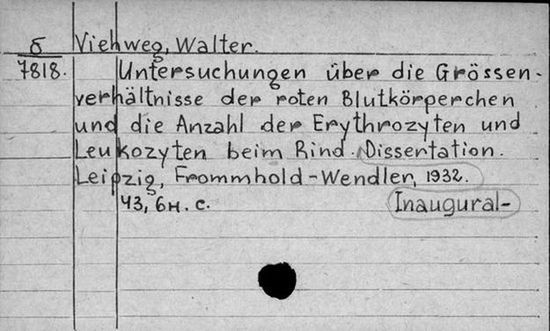 б Viehweg, Walter.
7818. Untersuchungen über die Grössen-
verhältnisse der roten Blutkörperchen
und die Anzahl der Erythrozyten und
Leukozyten beim Rind. Dissertation.
Leipzig, Frommhold-Wendler, 1932.
43, 6н. с. Inaugural-